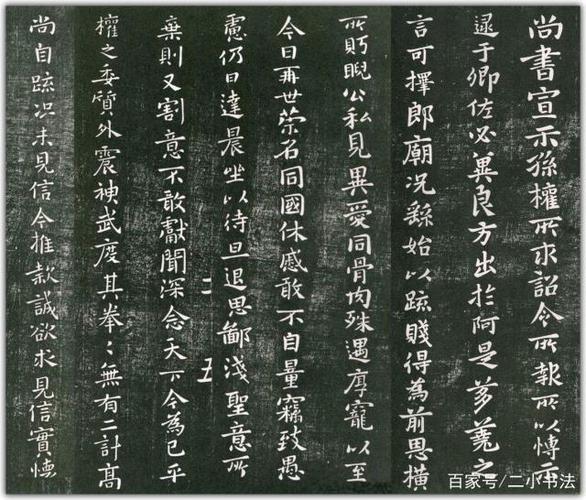 尚書宣示孫權所求詔令所報所以博示
逮于卿佐必冀良方出於阿是芻蕘之
言可擇郎廟況繇始以疏賤得為前恩橫
所眄睨公私見異愛同骨肉殊遇厚寵以至
今日再世榮名同國休慼敢不自量竊致愚
慮仍日達晨坐以待旦退思鄙淺聖意所
二 五
棄則又割意不敢獻聞深念天下今為已平
權之委質外震神武度其拳〻無有二計高
尚自疏況未見信今推款誠欲求見信實懷
百家号/二小书法